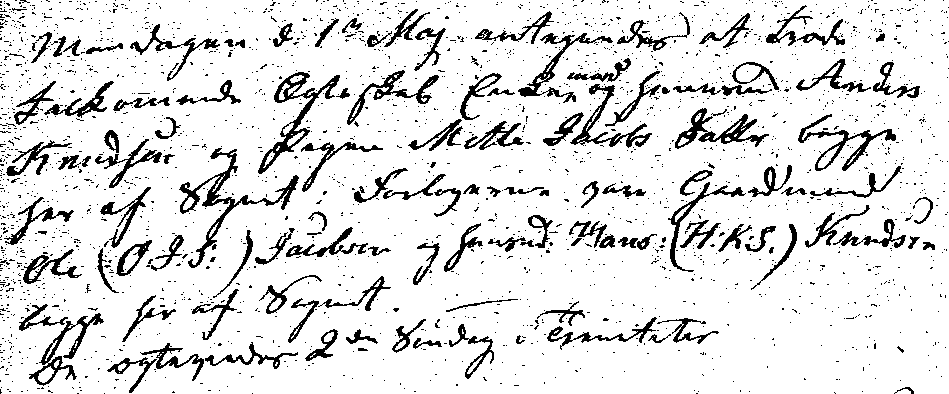 Mandagen d. 1te Maj antegnedes at træde i
Tilkommende Ægteskab Enkemand og Huusmd. Anders
Knudsen og Pigen Mette Jacobs Datter begge
her af Sognet. Forlogerne vare Gaardmand
Ole (O.I.S.) Jacobsen og Huusmd. Hans (H.K.S.) Knudsen
begge her af Sognet.
De ægteviedes 2den Søndag i Trinitatis